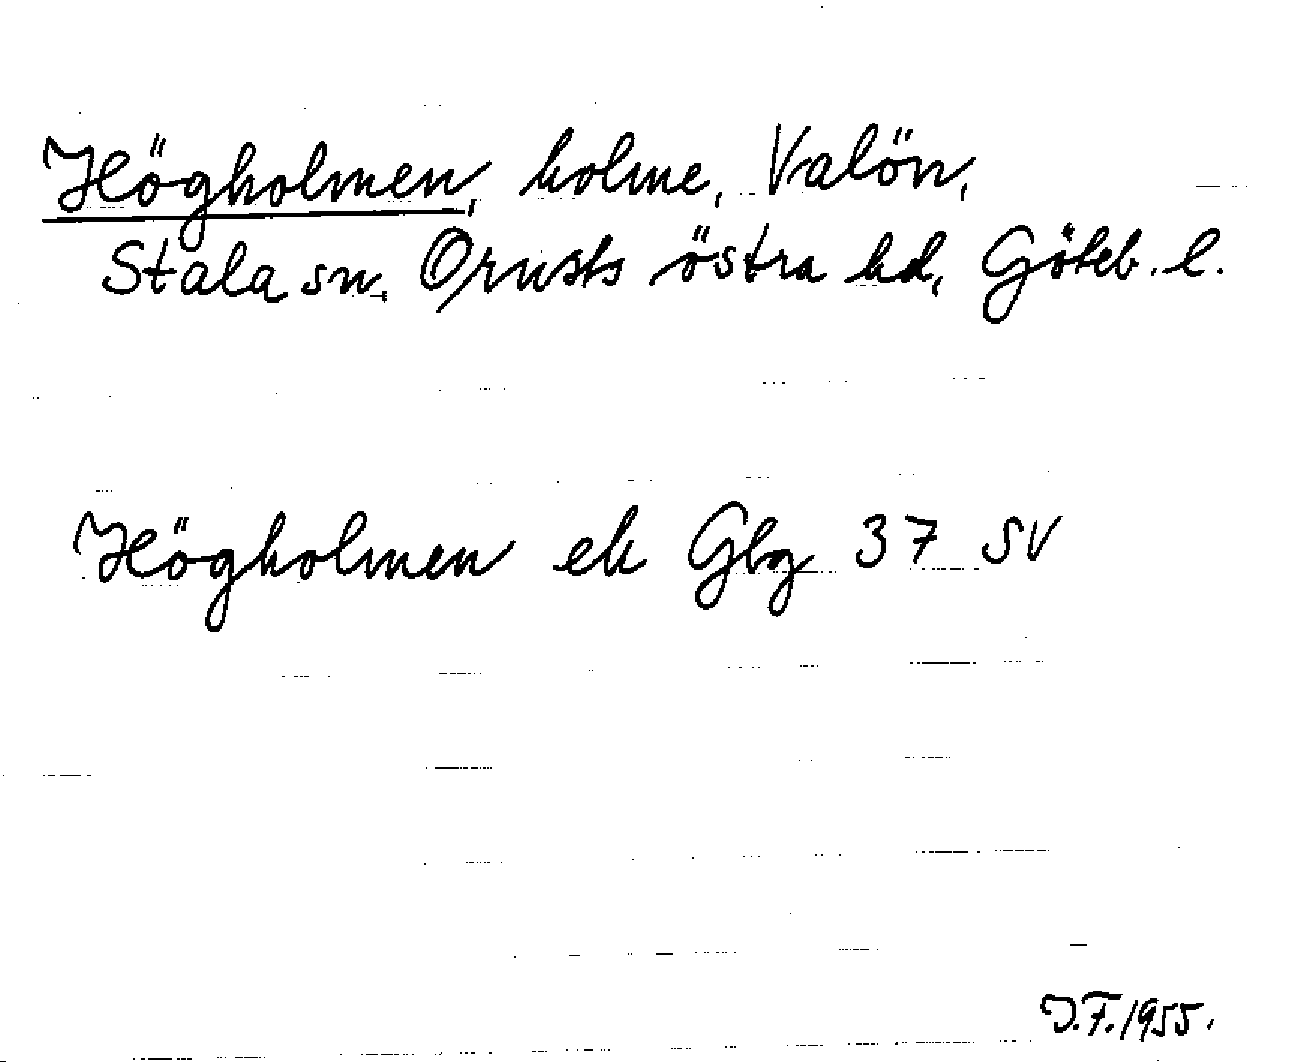 Högholmen, holme, Valön,
Stala sn, Orusts östra hd, Göteb. l.
Högholmen ek Gbg 37 SV
J.F. 1955.